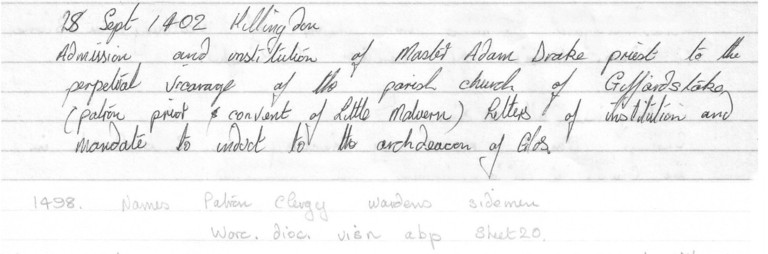 28 Sept 1402 Hillingdon
Admission and institution of Master Adam Drake priest to the
perpetual vicarage of the parish church of Giffardstoke
(patron prior & convent of Little Malvern) Letters of institution and
Mandate to induct to the archdeacon of Glos.
1498. Names Patron Clergy wardens sidemen
Worc. dioc. visn abp Sheet 20.